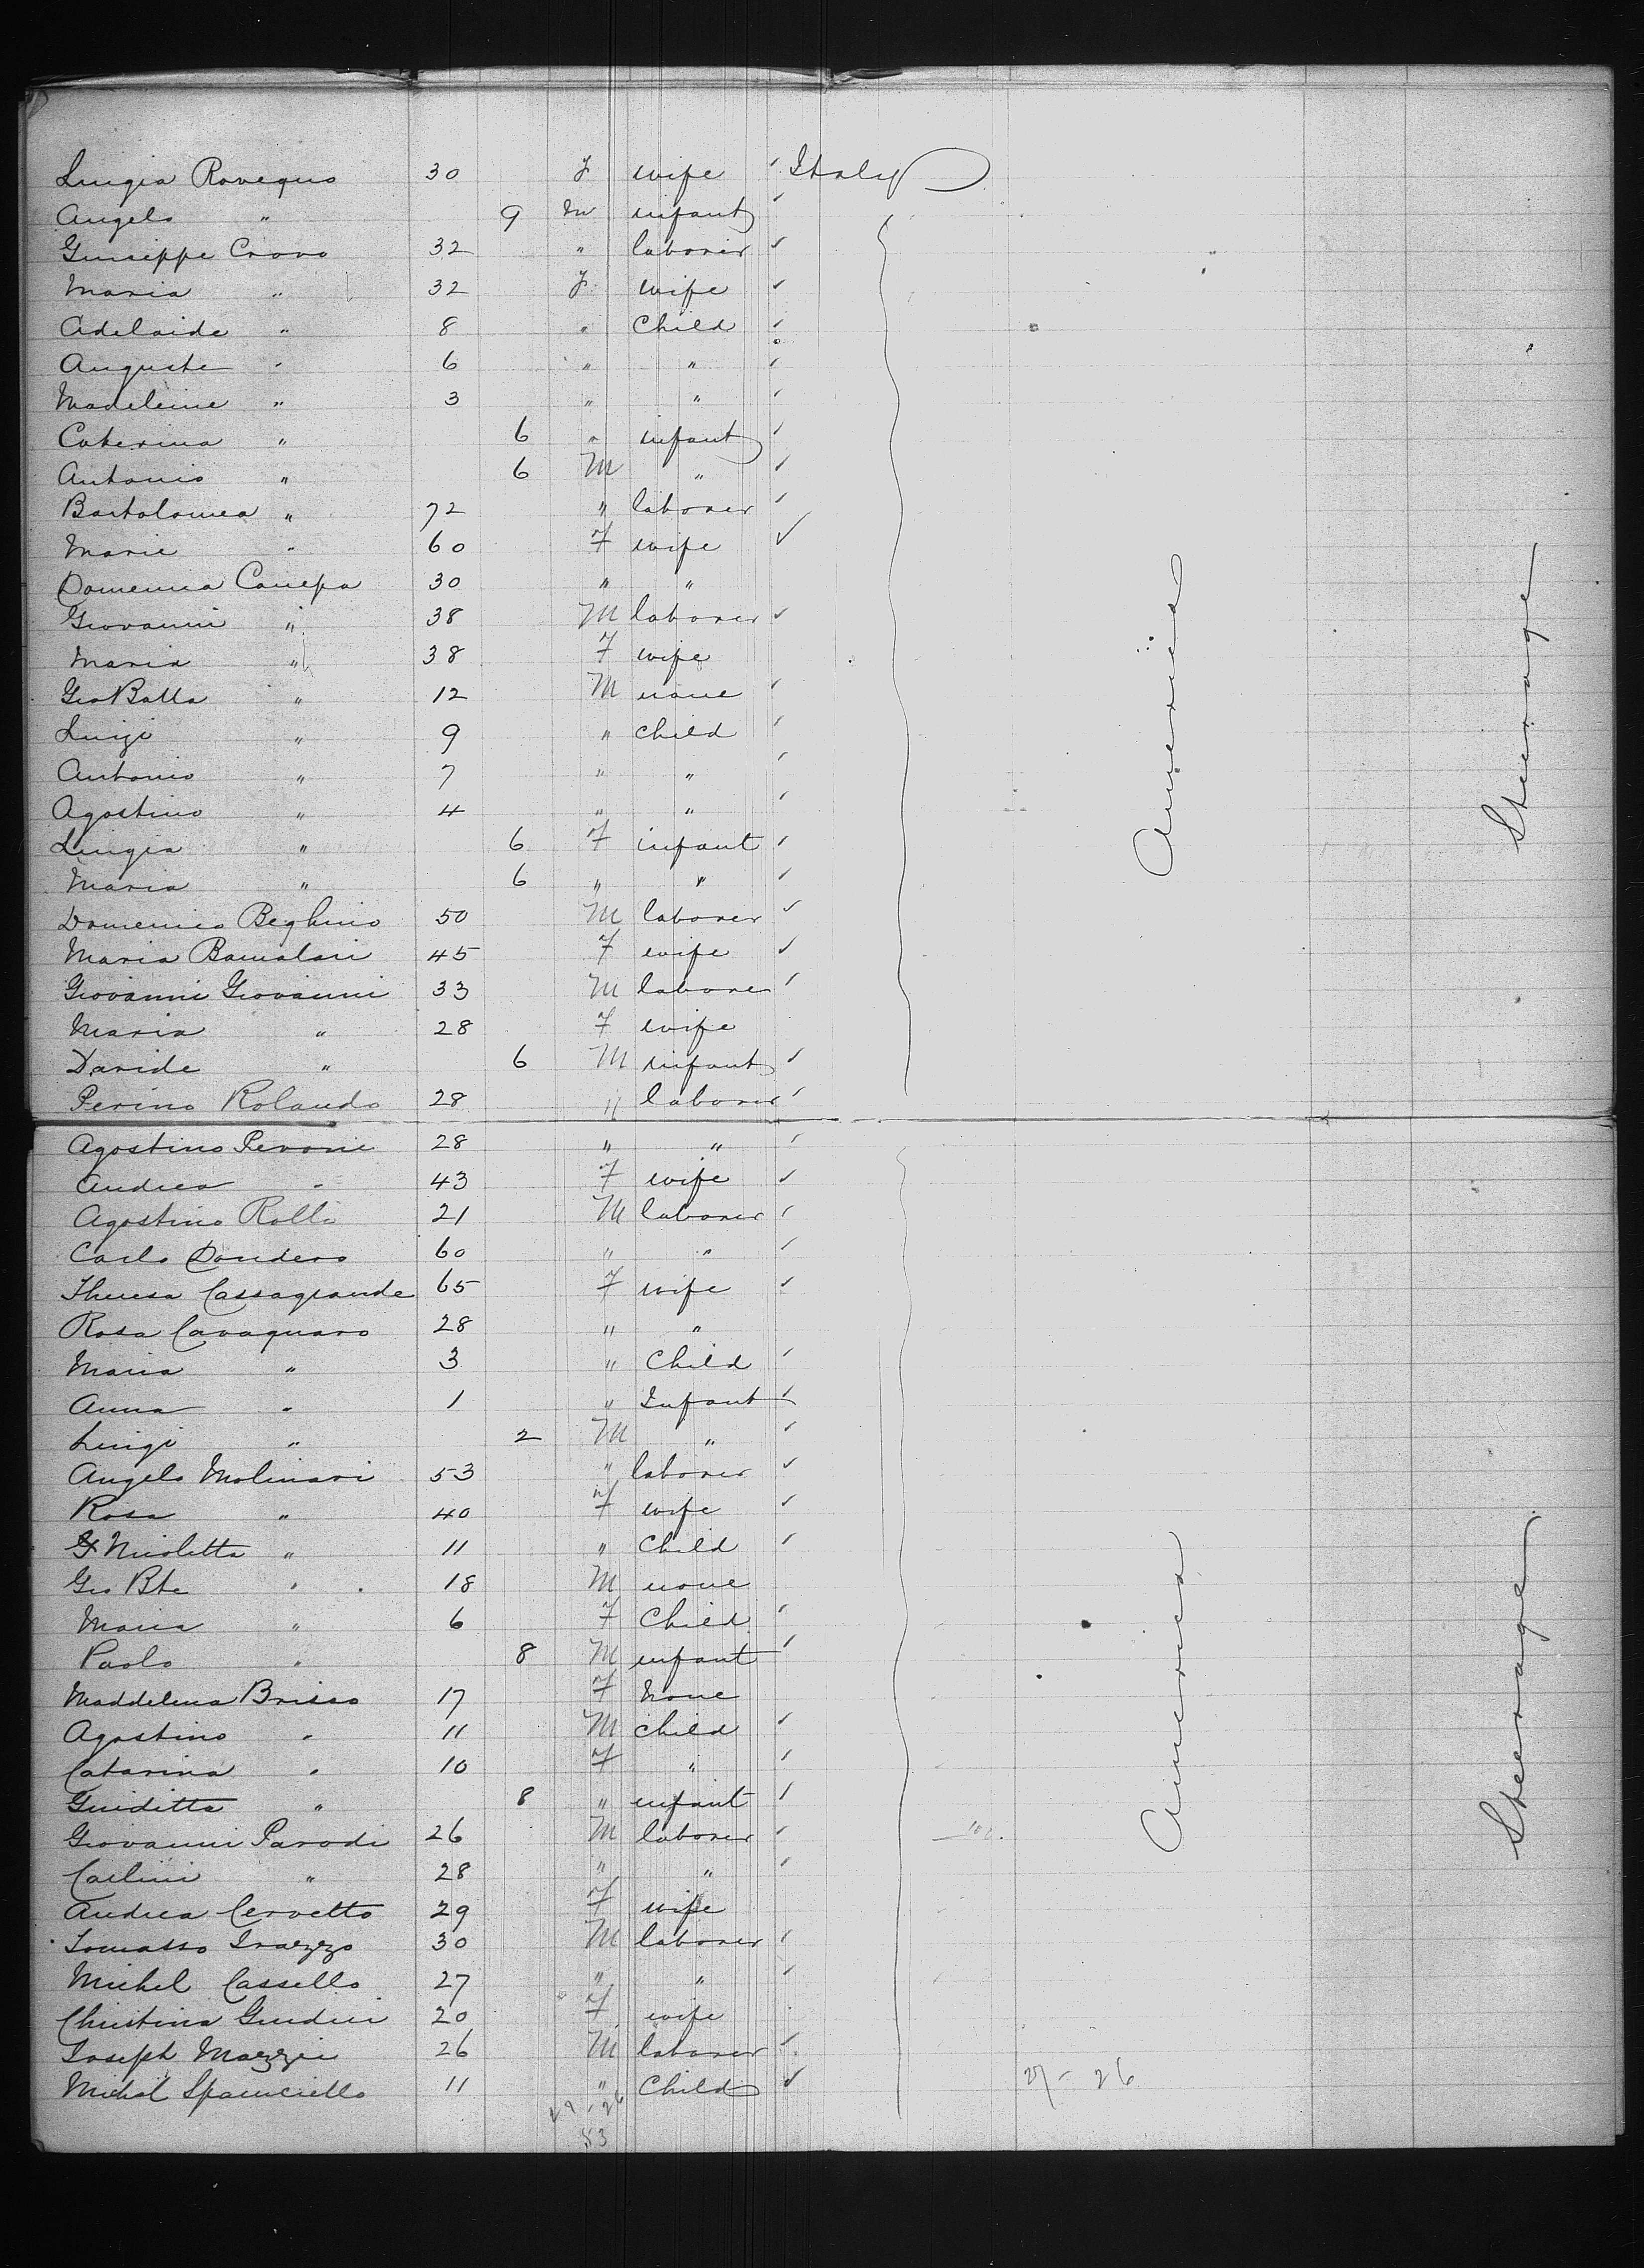 Luigia Rovegno 30 F wife ✓ Italy
Angelo " 9 m infant ✓
Giuseppe Crovo 32 " laborer ✓
Maria " 32 F wife ✓
Adelaide " 8 " Child ✓
Auguste " 6 " " ✓
Madeleine " 3 " " ✓
Caterina " 6 " infant ✓
Antonio " 6 M " ✓
Bartolomea " 72 " laborer ✓
Marie " 60 F wife ✓
Domenica Canepa 30 " "
Giovanni " 38 M laborer ✓
Maria " 38 F wife
Gio Batta " 12 M none ✓
Luigi " 9 " child ✓
Antonio " 7 " " ✓
Agostino " 4 " " ✓
Luigia " 6 F infant ✓
Maria " 6 " " ✓
Domenico Beghino 50 M laborer ✓
Maria Bamalari 45 F wife ✓
Giovanni Giovanni 33 M laborer ✓
Maria " 28 F wife
Davide " 6 M infant ✓
Perino Rolando 28 " laborer ✓
America
Steerage
Agostino Pevone 28 " " ✓
Andrea " 43 F wife ✓
Agostino Rolli 21 M laborer ✓
Carlo Dondero 60 " " ✓
Theresa Cassagrande 65 F wife ✓
Rosa Cavagnaro 28 " "
Maria " 3 " Child ✓
Anna " 1 " Infant ✓
Luigi " 2 M " ✓
Angelo Molinari 53 " laborer ✓
Rosa " 40 F wife ✓
Nicoletta " 11 " Child ✓
Gio Bte " 18 M none
Maria " 6 F Child ✓
Paolo " 8 M infant ✓
Maddelena Brisso 17 F None
Agostino " 11 M child ✓
Catarina " 10 F " ✓
Guiditta " 8 " infant ✓
Giovanni Parodi 26 M laborer ✓
Carlini " 28 " " ✓
Andrea Cervetto 29 F wife
Tomasso Irazzo 30 M laborer ✓
Michel Cassello 27 " " ✓
Christina Guidici 20 F wife
Joseph Mazzei 26 M laborer ✓
Michel 11 " Child ✓
America
Steerage
27 - 26
29 - 26
53